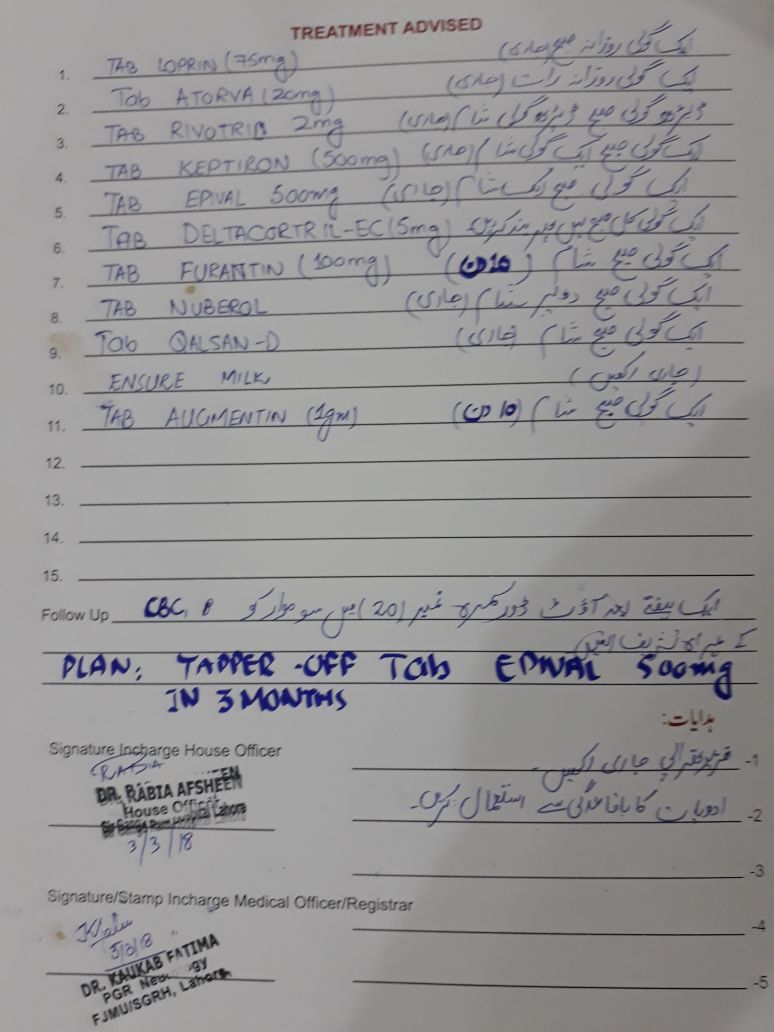 TREATMENT ADVISED
1. TAB LOPRIN (75mg) ایک گولی روزانہ صبح (جاری)
2. Tab ATORVA (20mg) ایک گولی روزانہ رات (جاری)
3. TAB RIVOTRIL 2mg ڈیڑھ گولی صبح ڈیڑھ گولی شام (جاری)
4. TAB KEPTIRON (500mg) ایک گولی صبح ایک گولی شام (جاری)
5. TAB EPIVAL 500mg ایک گولی صبح ایک شام (جاری)
6. TAB DELTACORTRIL-EC (5mg) ایک گولی کل صبح پھر بند کریں
7. TAB FURANTIN (100mg) ایک گولی صبح شام (10 دن)
8. TAB NUBEROL ایک گولی صبح دوپہر شام (جاری)
9. Tab QALSAN-D ایک گولی صبح شام (جاری)
10. ENSURE MILK (جاری رکھیں)
11. TAB AUGMENTIN (1gm) ایک گولی صبح شام (10 دن)
12.
13.
14.
15.
Follow Up CBC, ایک ہفتے بعد آؤٹ ڈور کمرہ نمبر (20) میں سوموار کو
کے ہمراہ تشریف لائیں
PLAN: TAPPER-OFF Tab EPIVAL 500mg
IN 3 MONTHS
ہدایات:
Signature Incharge House Officer
-1 فزیوتھراپی جاری رکھیں۔
RABIA
DR. RABIA AFSHEEN
House Officer
Sir Ganga Ram Hospital Lahore
-2 ادویات کا باقاعدگی سے استعمال کریں۔
3/3/18
-3
Signature/Stamp Incharge Medical Officer/Registrar
-4
3/3/18
DR. KAUKAB FATIMA
PGR Neurology
FJMU/SGRH, Lahore
-5